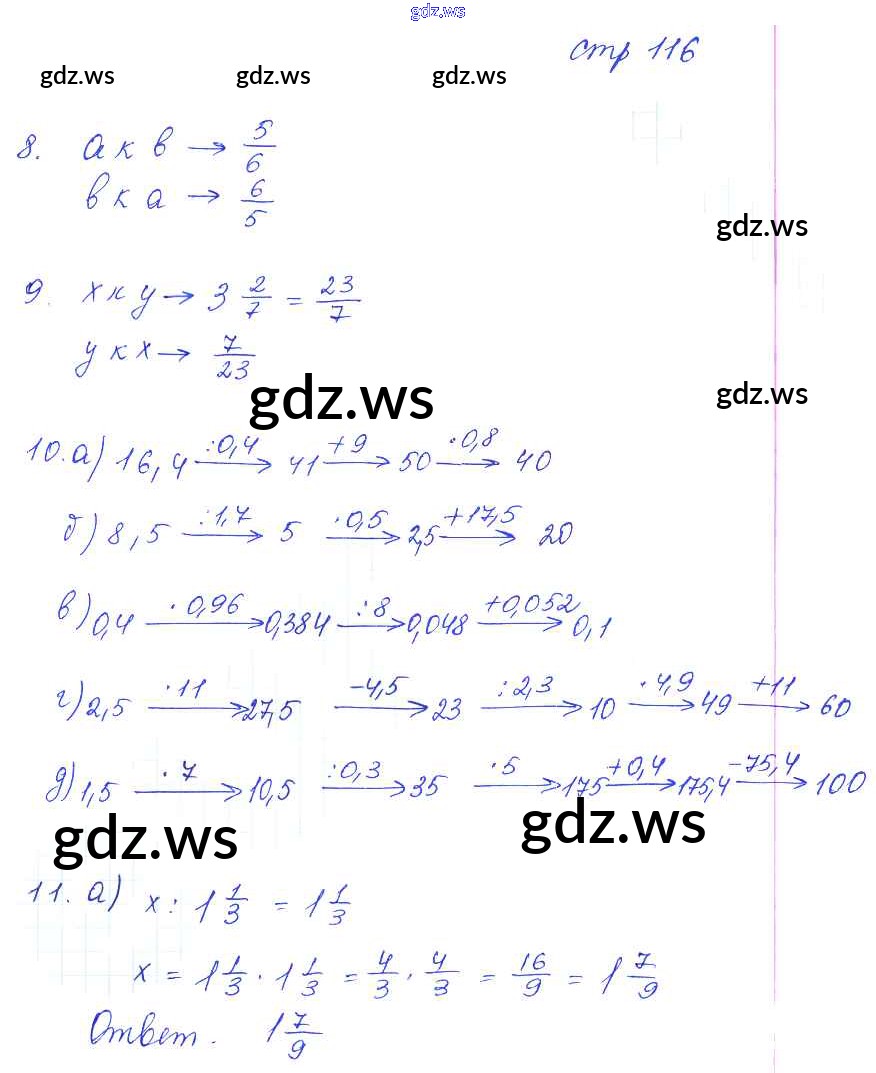 gdz.ws
стр 116
gdz.ws gdz.ws gdz.ws
8. а к в → 5/6
в к а → 6/5
gdz.ws
9. х к у → 3 2/7 = 23/7
у к х → 7/23
gdz.ws gdz.ws
10. а) 16,4 :0,4→ 41 +9→ 50 ·0,8→ 40
б) 8,5 :1,7→ 5 ·0,5→ 2,5 +17,5→ 20
в) 0,4 ·0,96→ 0,384 :8→ 0,048 +0,052→ 0,1
г) 2,5 ·11→ 27,5 -4,5→ 23 :2,3→ 10 ·4,9→ 49 +11→ 60
д) 1,5 ·7→ 10,5 :0,3→ 35 ·5→ 175 +0,4→ 175,4 -75,4→ 100
gdz.ws gdz.ws
11. а) х : 1 1/3 = 1 1/3
х = 1 1/3 · 1 1/3 = 4/3 · 4/3 = 16/9 = 1 7/9
Ответ. 1 7/9